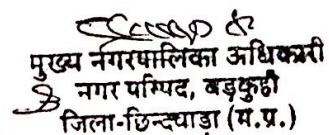 मुख्य नगरपालिका अधिकारी
नगर परिषद, बड़कुही
जिला-छिन्दवाड़ा (म.प्र.)